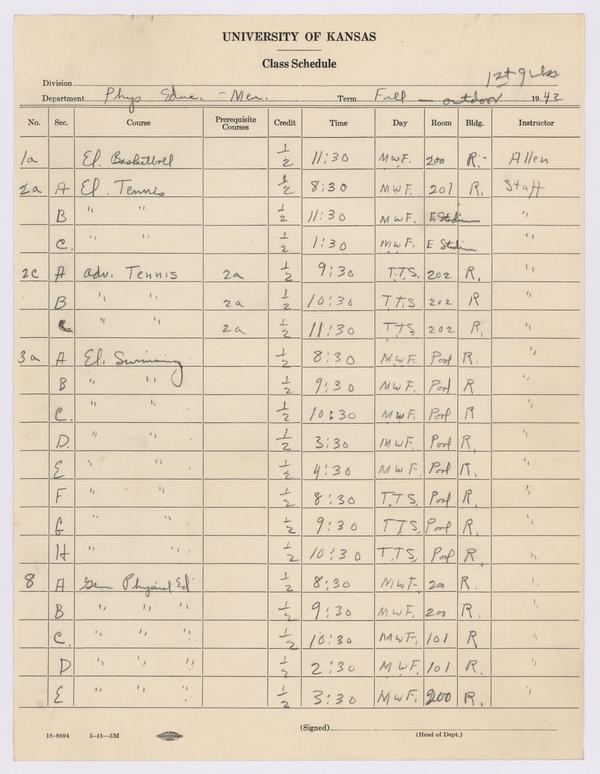 UNIVERSITY OF KANSAS
Class Schedule
1st 9 wks
Division
Department Phys Educ. - Men. Term Fall - outdoor 1943
No. Sec. Course Prerequisite Courses Credit Time Day Room Bldg. Instructor
1a El. Basketball 1/2 11:30 MWF. 200 R. Allen
2a A El. Tennis 1/2 8:30 MWF. 201 R. Staff
B " " 1/2 11:30 MWF. E Stadium "
C. " " 1/2 1:30 MWF. E Stadium "
2c A adv. Tennis 2a 1/2 9:30 T.T.S. 202 R. "
B " " 2a 1/2 10:30 TTS 202 R "
C " " 2a 1/2 11:30 TTS 202 R. "
3a A El. Swimming 1/2 8:30 MWF. Pool R. "
B " " 1/2 9:30 MWF. Pool R "
C. " " 1/2 10:30 MWF. Pool R "
D. " " 1/2 3:30 MWF. Pool R. "
E " " 1/2 4:30 MWF. Pool R. "
F " " 1/2 8:30 T.T.S. Pool R. "
G " " 1/2 9:30 T.T.S. Pool R. "
H " " 1/2 10:30 T.T.S. Pool R. "
8 A Gen Physical Ed 1/2 8:30 MWF. 200 R. "
B " " " 1/2 9:30 MWF. 200 R. "
C. " " " 1/2 10:30 MWF. 101 R "
D " " " 1/2 2:30 MWF. 101 R. "
E " " " 1/2 3:30 MWF. 200 R. "
(Signed)
18-8694 5-41-5M (Head of Dept.)